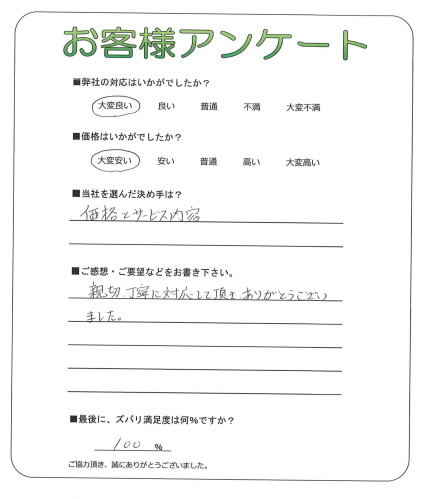 お客様アンケート
■弊社の対応はいかがでしたか?
大変良い 良い 普通 不満 大変不満
■価格はいかがでしたか?
大変安い 安い 普通 高い 大変高い
■当社を選んだ決め手は?
価格とサービス内容
■ご感想・ご要望などをお書き下さい。
親切、丁寧に対応して頂き、ありがとうござい
ました。
■最後に、ズバリ満足度は何%ですか?
100 %
ご協力頂き、誠にありがとうございました。